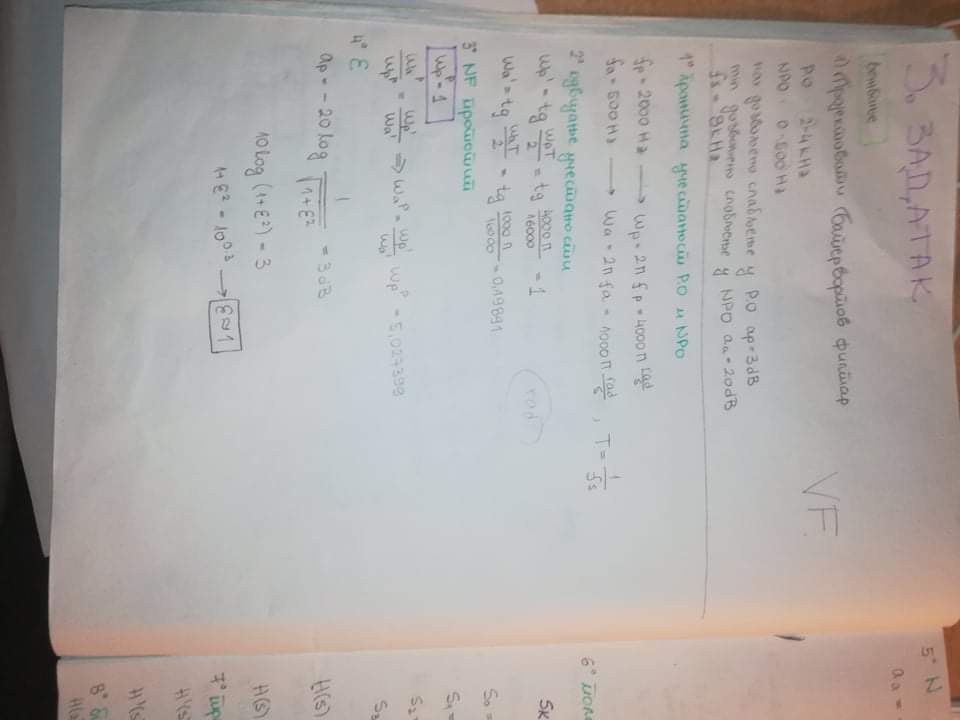 3. ЗАДАТАК
Вежбање
VF
1) Пројектовати Батервортов филтар
PO: 2-4kHz
NPO: 0-500Hz
max дозвољено слабљење у PO ap=3dB
min дозвољено слабљење у NPO aa=20dB
fs=8kHz
1° Гранична учестаност PO и NPO
fp = 2000Hz → ωp = 2π fp = 4000π rad/s
fa = 500Hz → ωa = 2π fa = 1000π rad/s, T = 1/fs
2° учестаности
ωp' = tg ωpT/2 = tg 4000π/16000 = 1
(rad)
ωa' = tg ωaT/2 = tg 1000π/16000 = 0.19891
3° NF прототип
ωp^p = 1
ωa^p/ωp^p = ωp'/ωa' ⇒ ωa^p = ωp'/ωa' ωp^p = 5,027339
4° ε
ap = -20log 1/√(1+ε²) = 3dB
10log(1+ε²) = 3
1+ε² = 10^0.3 → ε≈1
5° N
aa =
6°
Sk
S0 =
S1 =
S2
H(s)
H(s)
7°
H(s)
H'(s)
8°